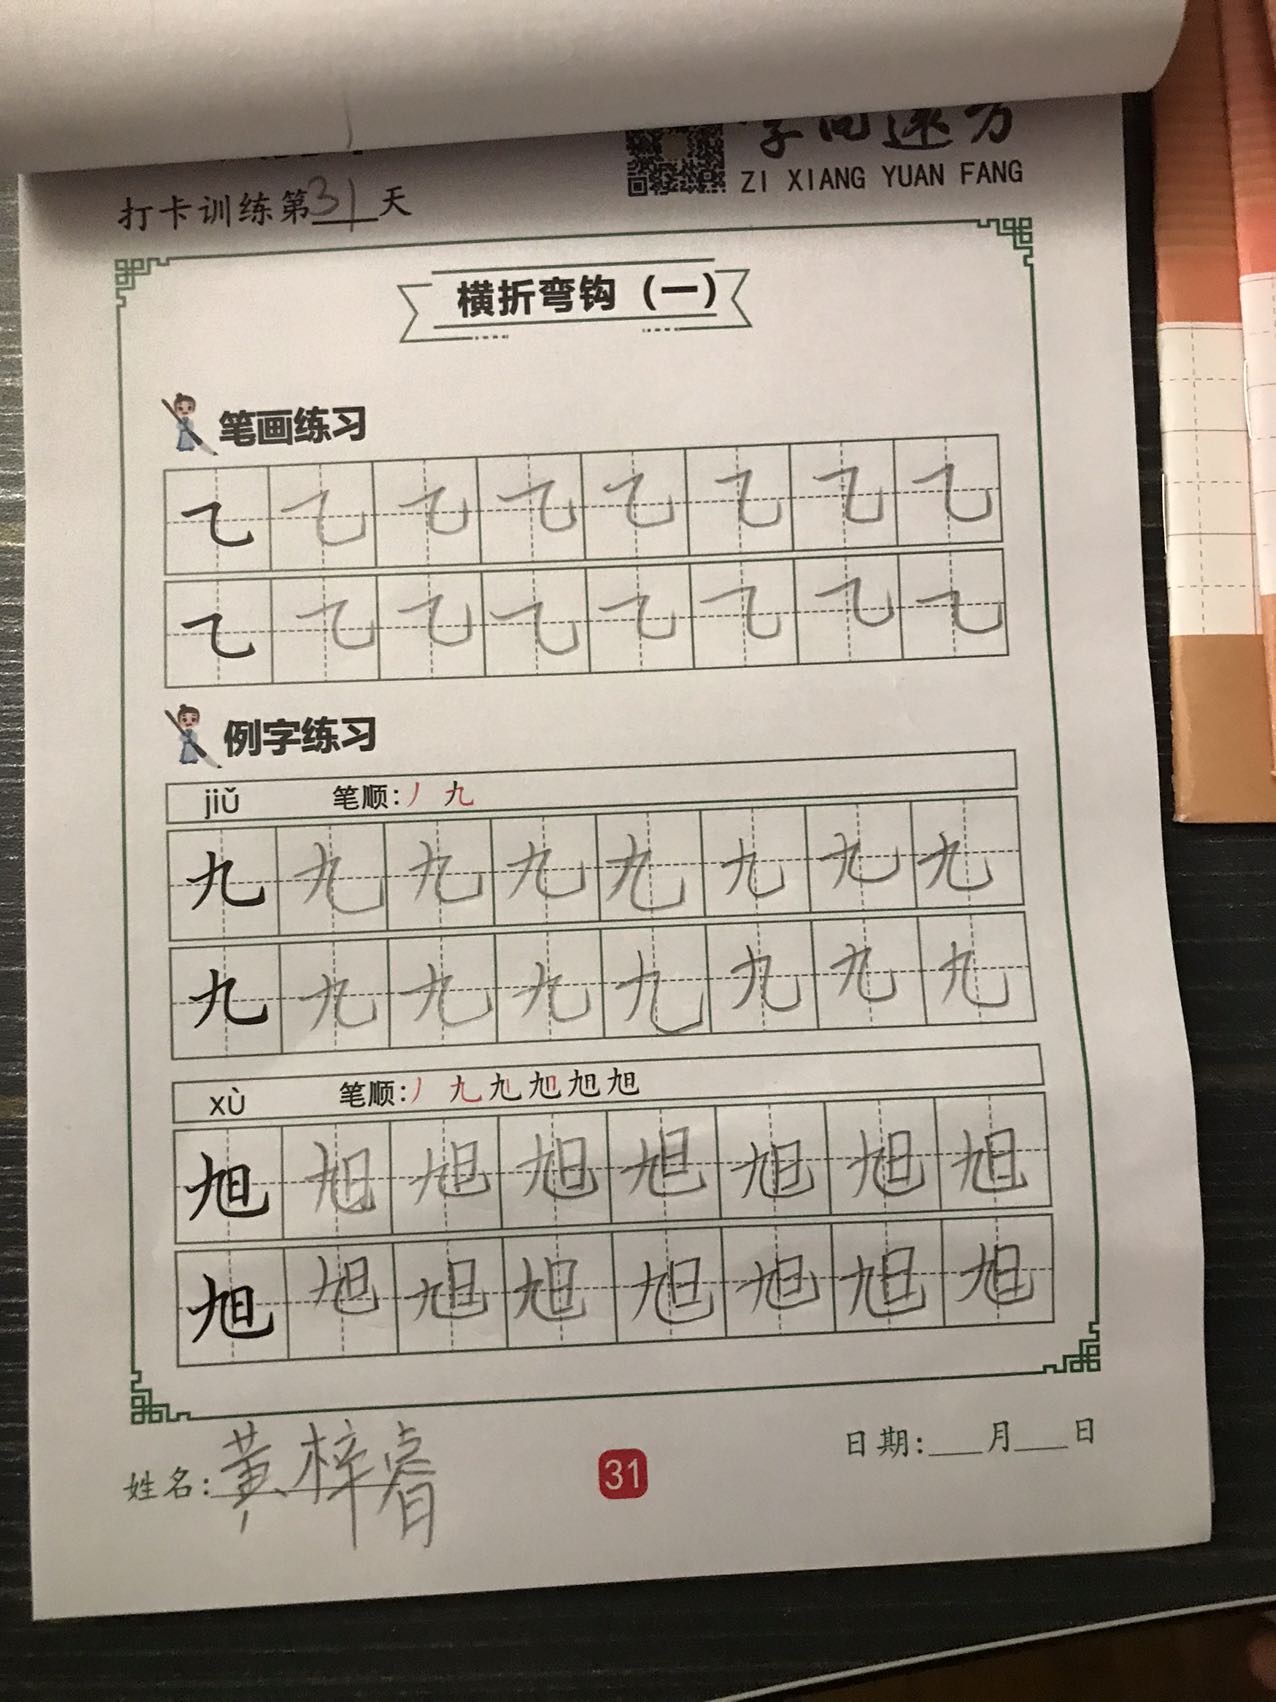 字向远方
ZI XIANG YUAN FANG
打卡训练第31天
横折弯钩（一）
笔画练习
㇈ ㇈ ㇈ ㇈ ㇈ ㇈ ㇈ ㇈
㇈ ㇈ ㇈ ㇈ ㇈ ㇈ ㇈ ㇈
例字练习
jiǔ 笔顺:丿 九
九 九 九 九 九 九 九 九
九 九 九 九 九 九 九 九
xù 笔顺:丿 九 九 旭 旭 旭
旭 旭 旭 旭 旭 旭 旭 旭
旭 旭 旭 旭 旭 旭 旭 旭
姓名:黄梓睿
31
日期:___月___日